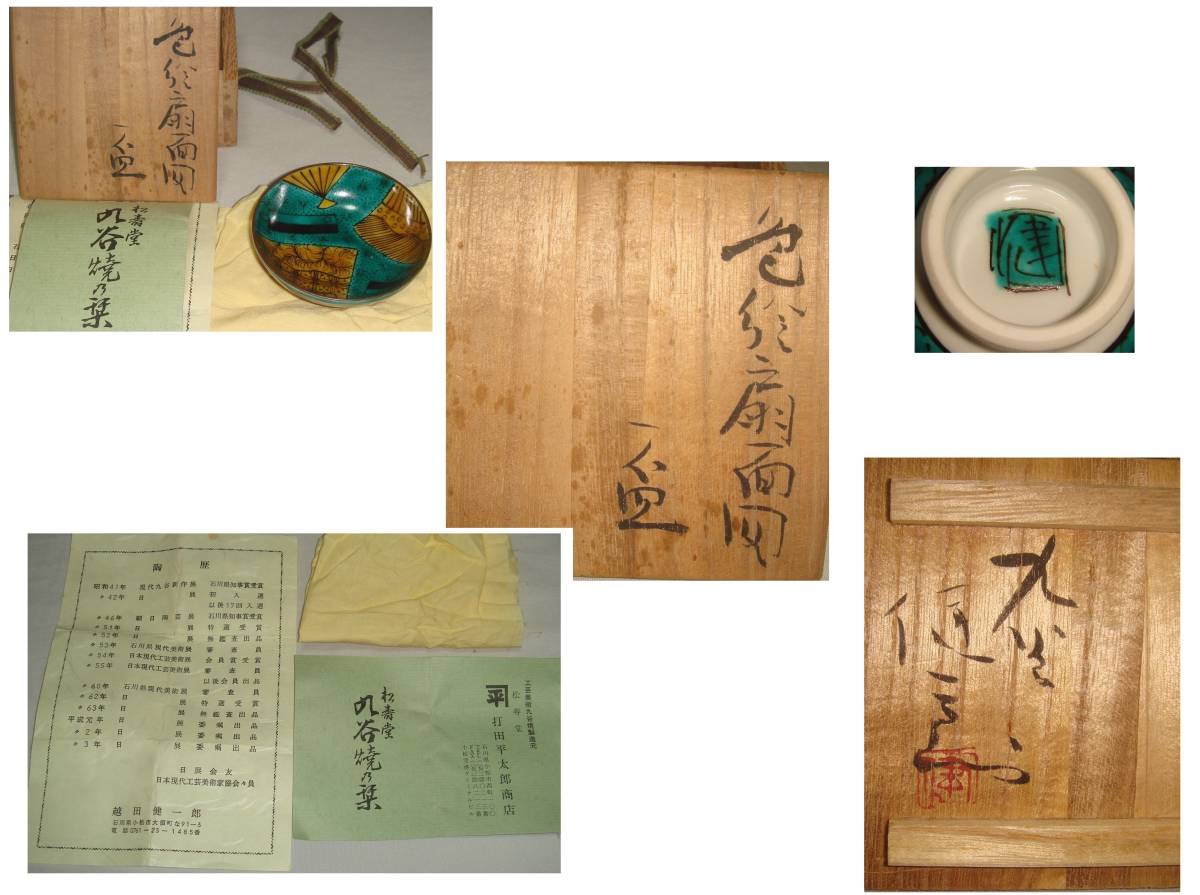 色絵扇面図
盃
松寿堂
九谷焼乃栞
色絵扇面図
盃
健
陶歴
昭和41年 現代九谷新作展 石川県知事賞受賞
〃42年 日展 初入選
以後17回入選
〃46年 朝日陶芸展 石川県知事賞受賞
〃51年 日展 特選受賞
〃52年 日展 無鑑査出品
〃53年 石川県現代美術展 審査員
〃54年 日本現代工芸美術展 会員賞受賞
〃55年 日本現代工芸美術展 審査員
以後会員出品
〃60年 石川県現代美術展 審査員
〃62年 日展 特選受賞
〃63年 日展 無鑑査出品
平成元年 日展 委嘱出品
〃2年 日展 委嘱出品
〃3年 日展 委嘱出品
日展会友
日本現代工芸美術家協会々員
越田健一郎
石川県小松市大領町な91-5
電話0761-23-1485番
松寿堂
九谷焼乃栞
松寿堂
打田平太郎商店
九谷
健